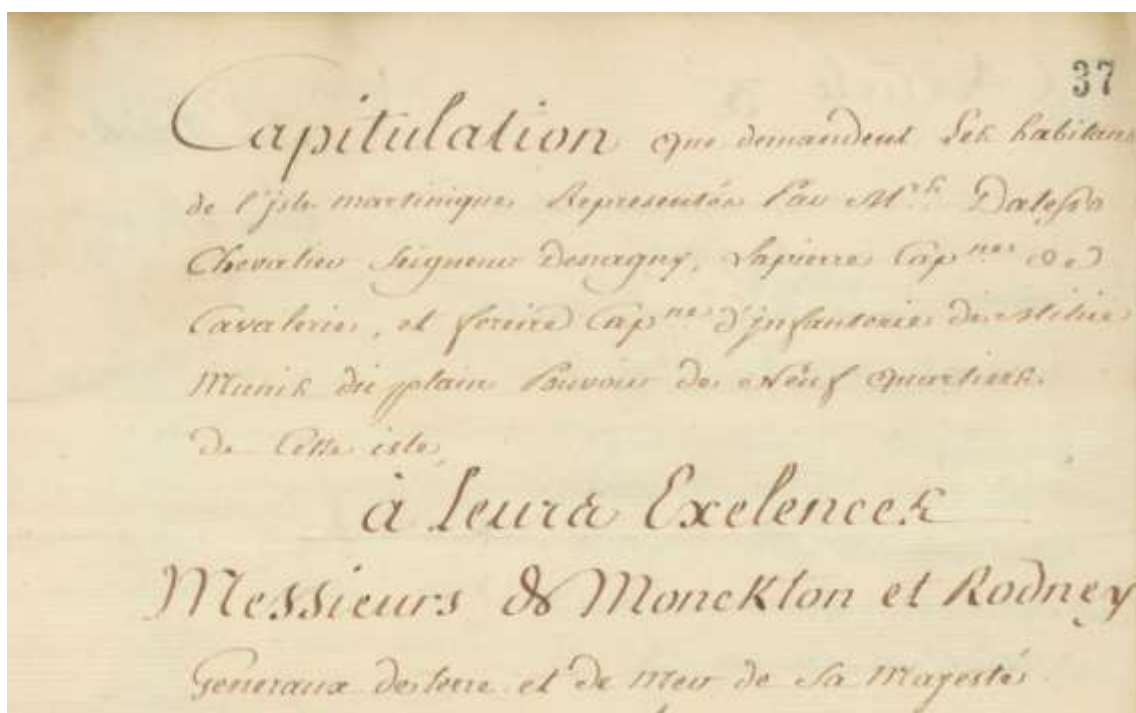 37
Capitulation que demandent Les habitans
de l'jsle martinique Representés Par M.rs Dalesso
Chevalier Seigneur Deragny, Lapierre Cap.nes de
Cavalerie, et foreire Cap.ne d'jnfanterie de Milice
Munis du plain Pouvoir de Neuf Quartiers
de Cette isle,
à Leurs Exelences
Messieurs de Monckton et Rodney
Generaux de terre et de Mer de Sa Majestés